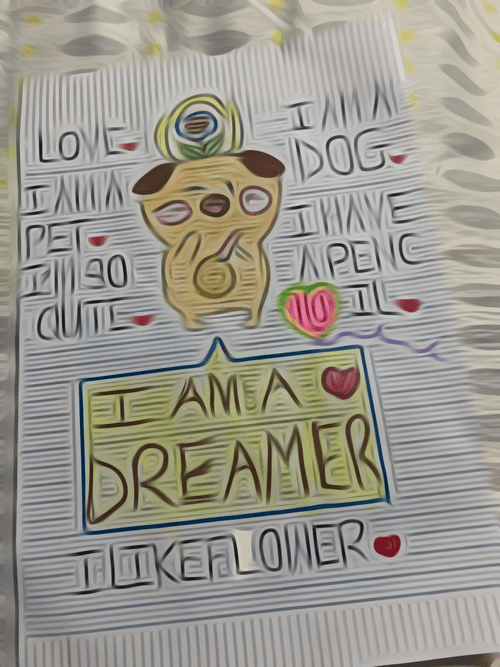 LOVE
I AM A
PET
I'M SO
CUTE
I AM A
DOG
I HAVE
A PENC
IL
10
I AM A
DREAMER
I LIKE FLOWER